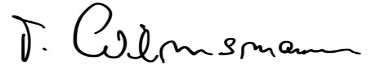 J. Wilmsmann